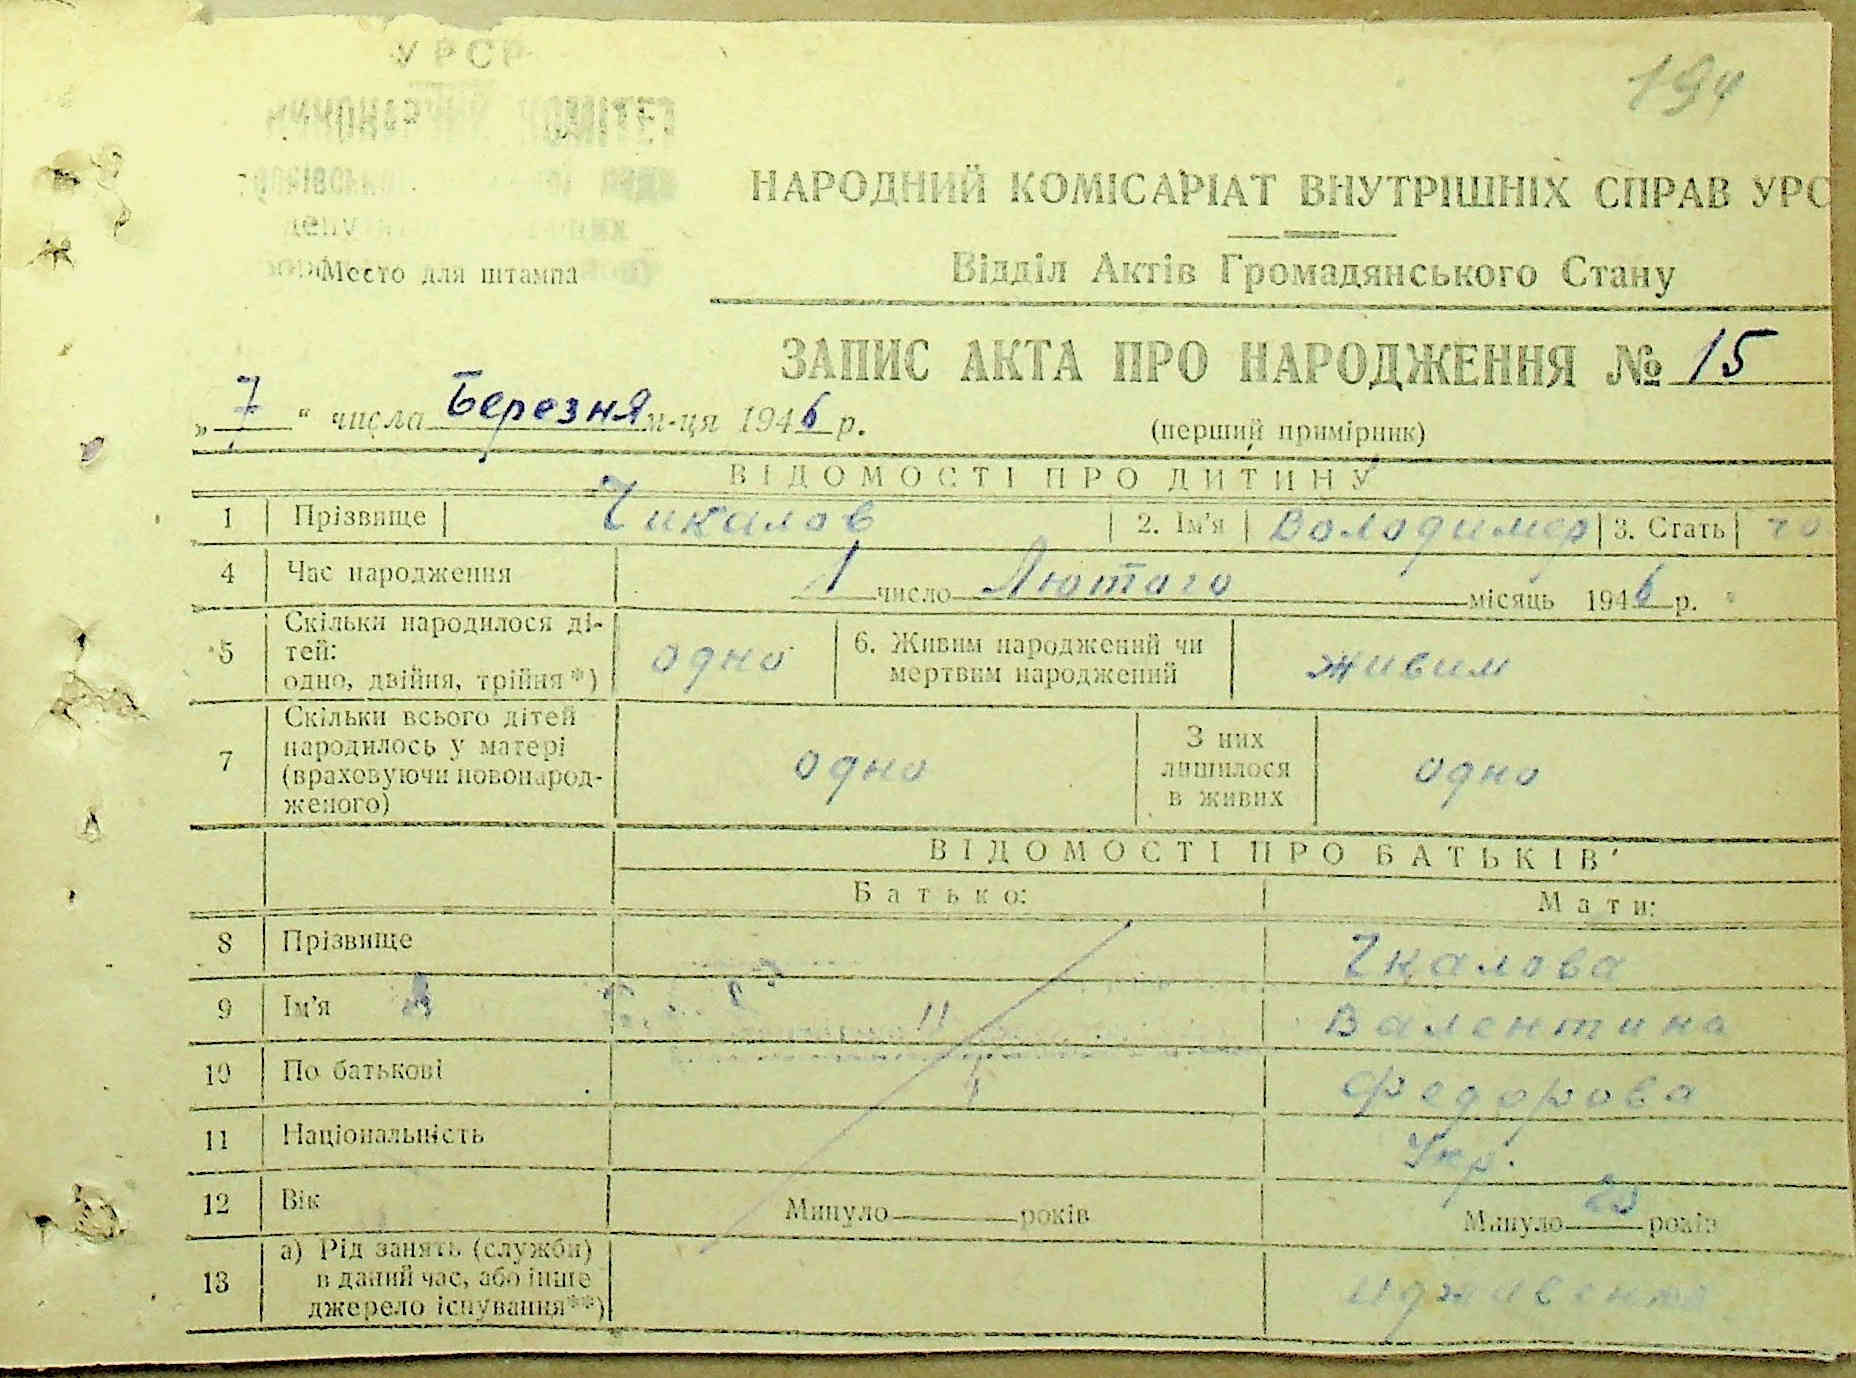 194
НАРОДНИЙ КОМІСАРІАТ ВНУТРІШНІХ СПРАВ УРС
Відділ Актів Громадянського Стану
Место для штампа
ЗАПИС АКТА ПРО НАРОДЖЕННЯ № 15
„7“ числа Березня м-ця 1946 р.
(перший примірник)
ВІДОМОСТІ ПРО ДИТИНУ
1 Прізвище Чикалов 2. Ім'я Володимер 3. Стать чо
4 Час народження 1 число Лютого місяць 1946 р.
5 Скільки народилося ді-
тей:
одно, двійня, трійня*) одно 6. Живим народжений чи
мертвим народжений живим
7 Скільки всього дітей
народилось у матері
(враховуючи новонарод-
женого) одно З них
лишилося
в живих одно
ВІДОМОСТІ ПРО БАТЬКІВ
Батько: Мати:
8 Прізвище Чкалова
9 Ім'я Валентина
10 По батькові Федорова
11 Національність Укр.
12 Вік Минуло ___ років Минуло 23 років
13 а) Рід занять (служби)
в даний час, або інше
джерело існування**)